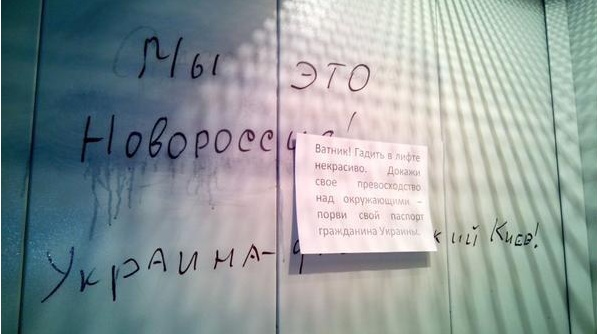 Мы это
Новоросс
Ватник! Гадить в лифте
некрасиво. Докажи
свое превосходство
над окружающими –
порви свой паспорт
гражданина Украины.
Украина- кий Киев!